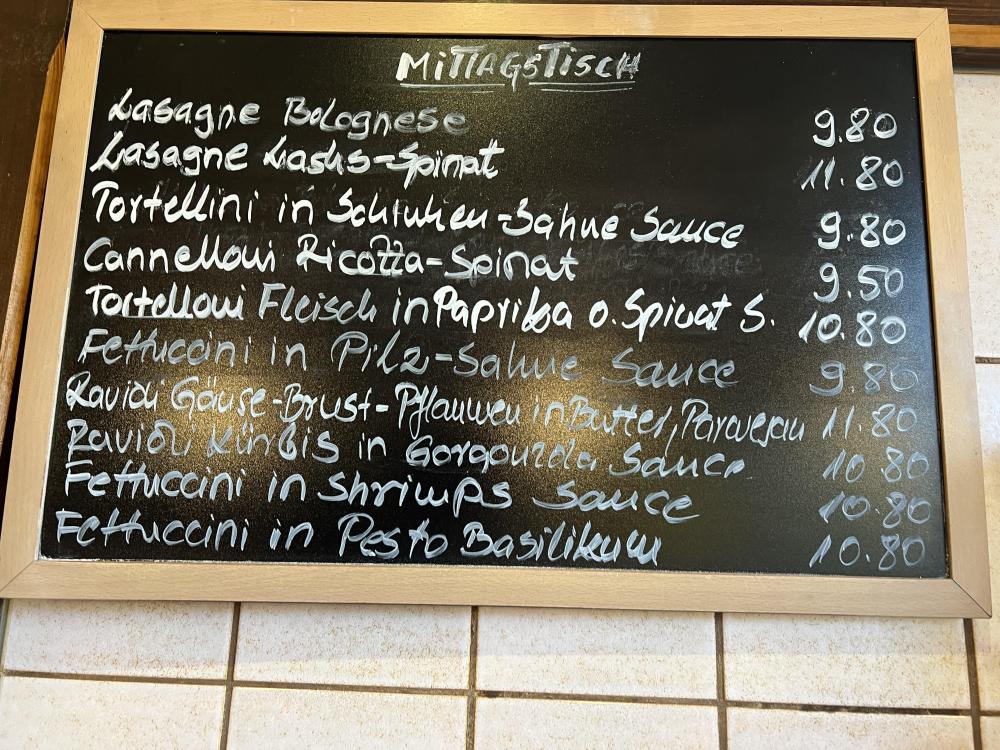 MITTAGSTISCH
Lasagne Bolognese 9.80
Lasagne Lachs-Spinat 11.80
Tortellini in Schinken-Sahne Sauce 9.80
Cannelloni Ricotta-Spinat 9.50
Tortelloni Fleisch in Paprika o. Spinat S. 10.80
Fettuccini in Pilz-Sahne Sauce 9.80
Ravioli Gänse-Brust-Pflaumen in Butter, Parmesan 11.80
Ravioli Kürbis in Gorgonzola Sauce 10.80
Fettuccini in Shrimps Sauce 10.80
Fettuccini in Pesto Basilikum 10.80